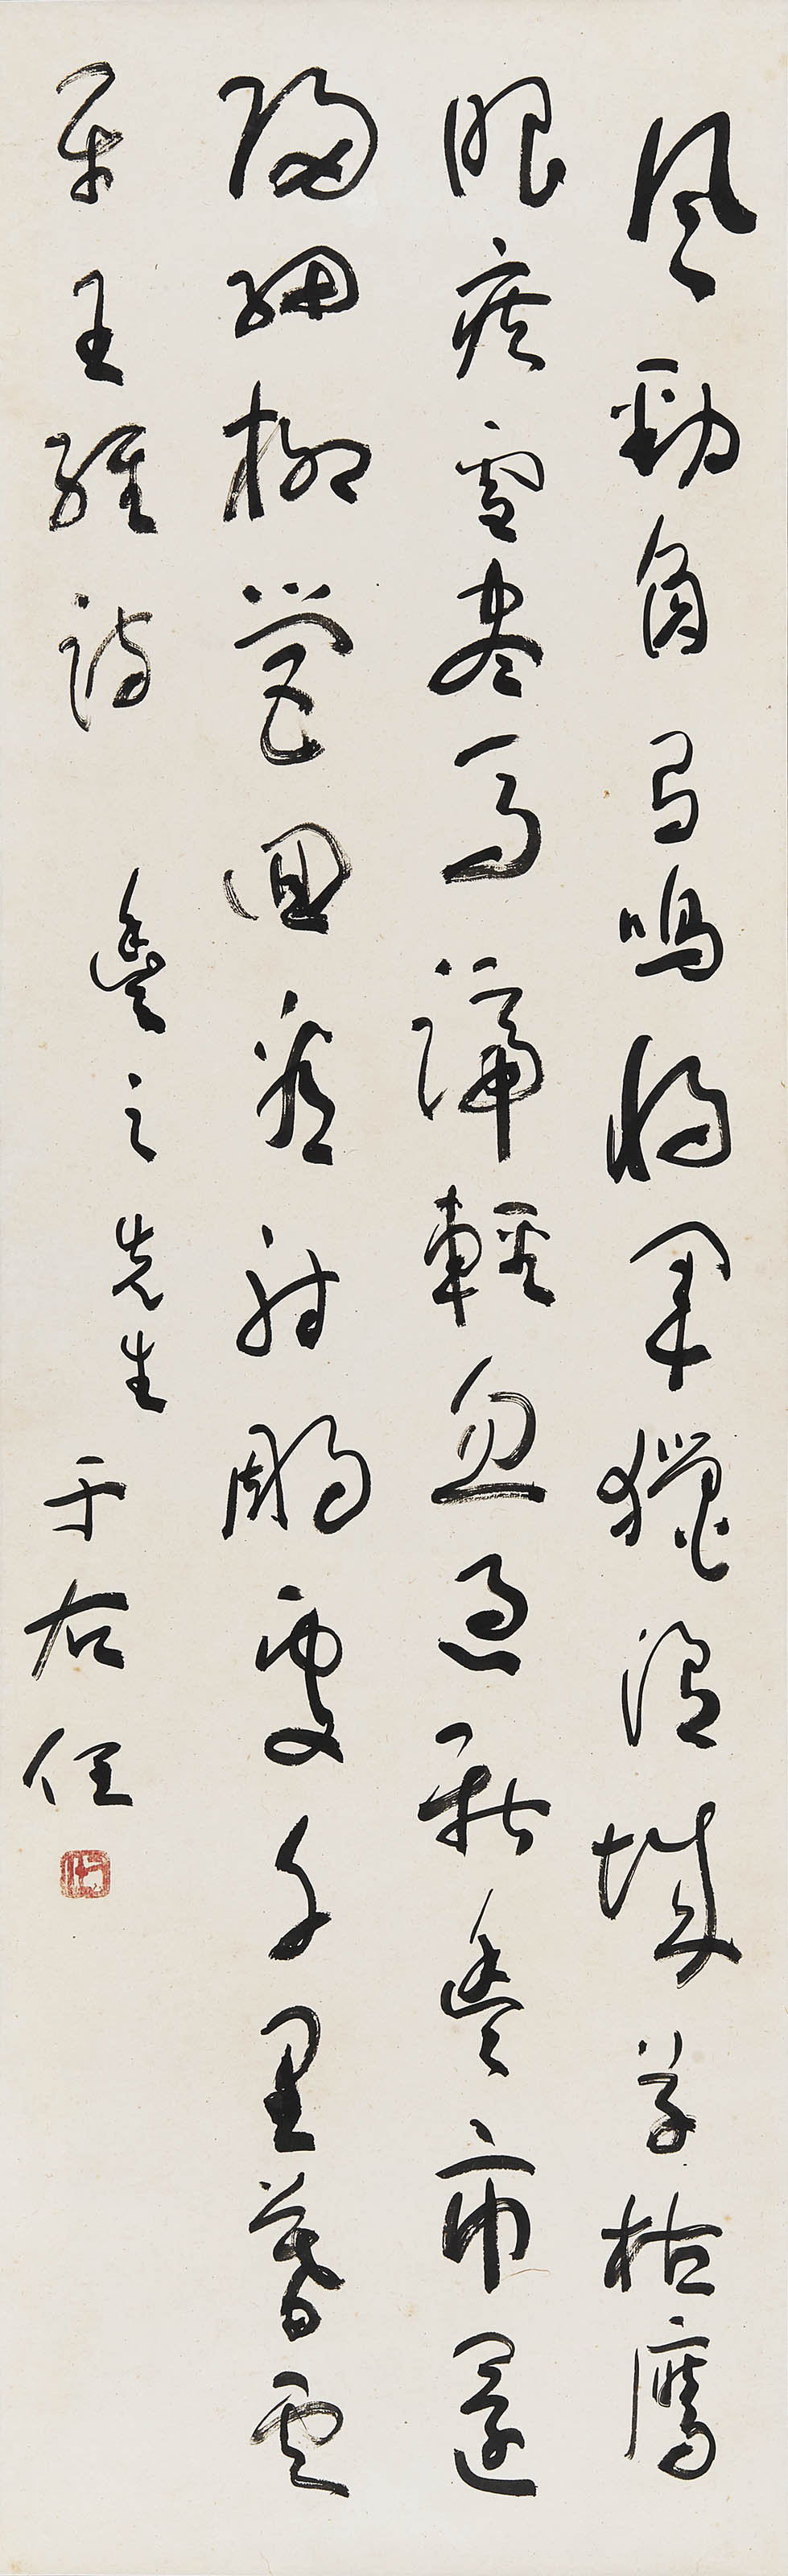 風勁角弓鳴將軍獵渭城草枯鷹
眼疾雪盡馬蹄輕忽過新豐市還
歸細柳營回看射鵰處千里暮雲
平王維詩
豐之先生
于右任